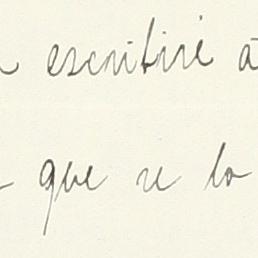 escribiré á
que se lo